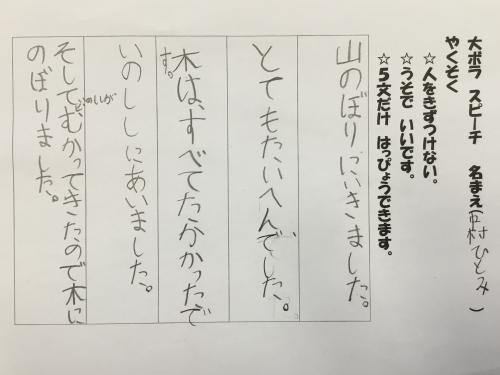 大ボラ スピーチ 名まえ(市村ひとみ)
やくそく
☆人をきずつけない。
☆うそで いいです。
☆5文だけ はっぴょうできます。
山のぼりにいきました。
とてもたいへんでした。
木は、すべてたかかったで
す。
いのししにあいました。
そしてむかってきたので木に
のぼりました。